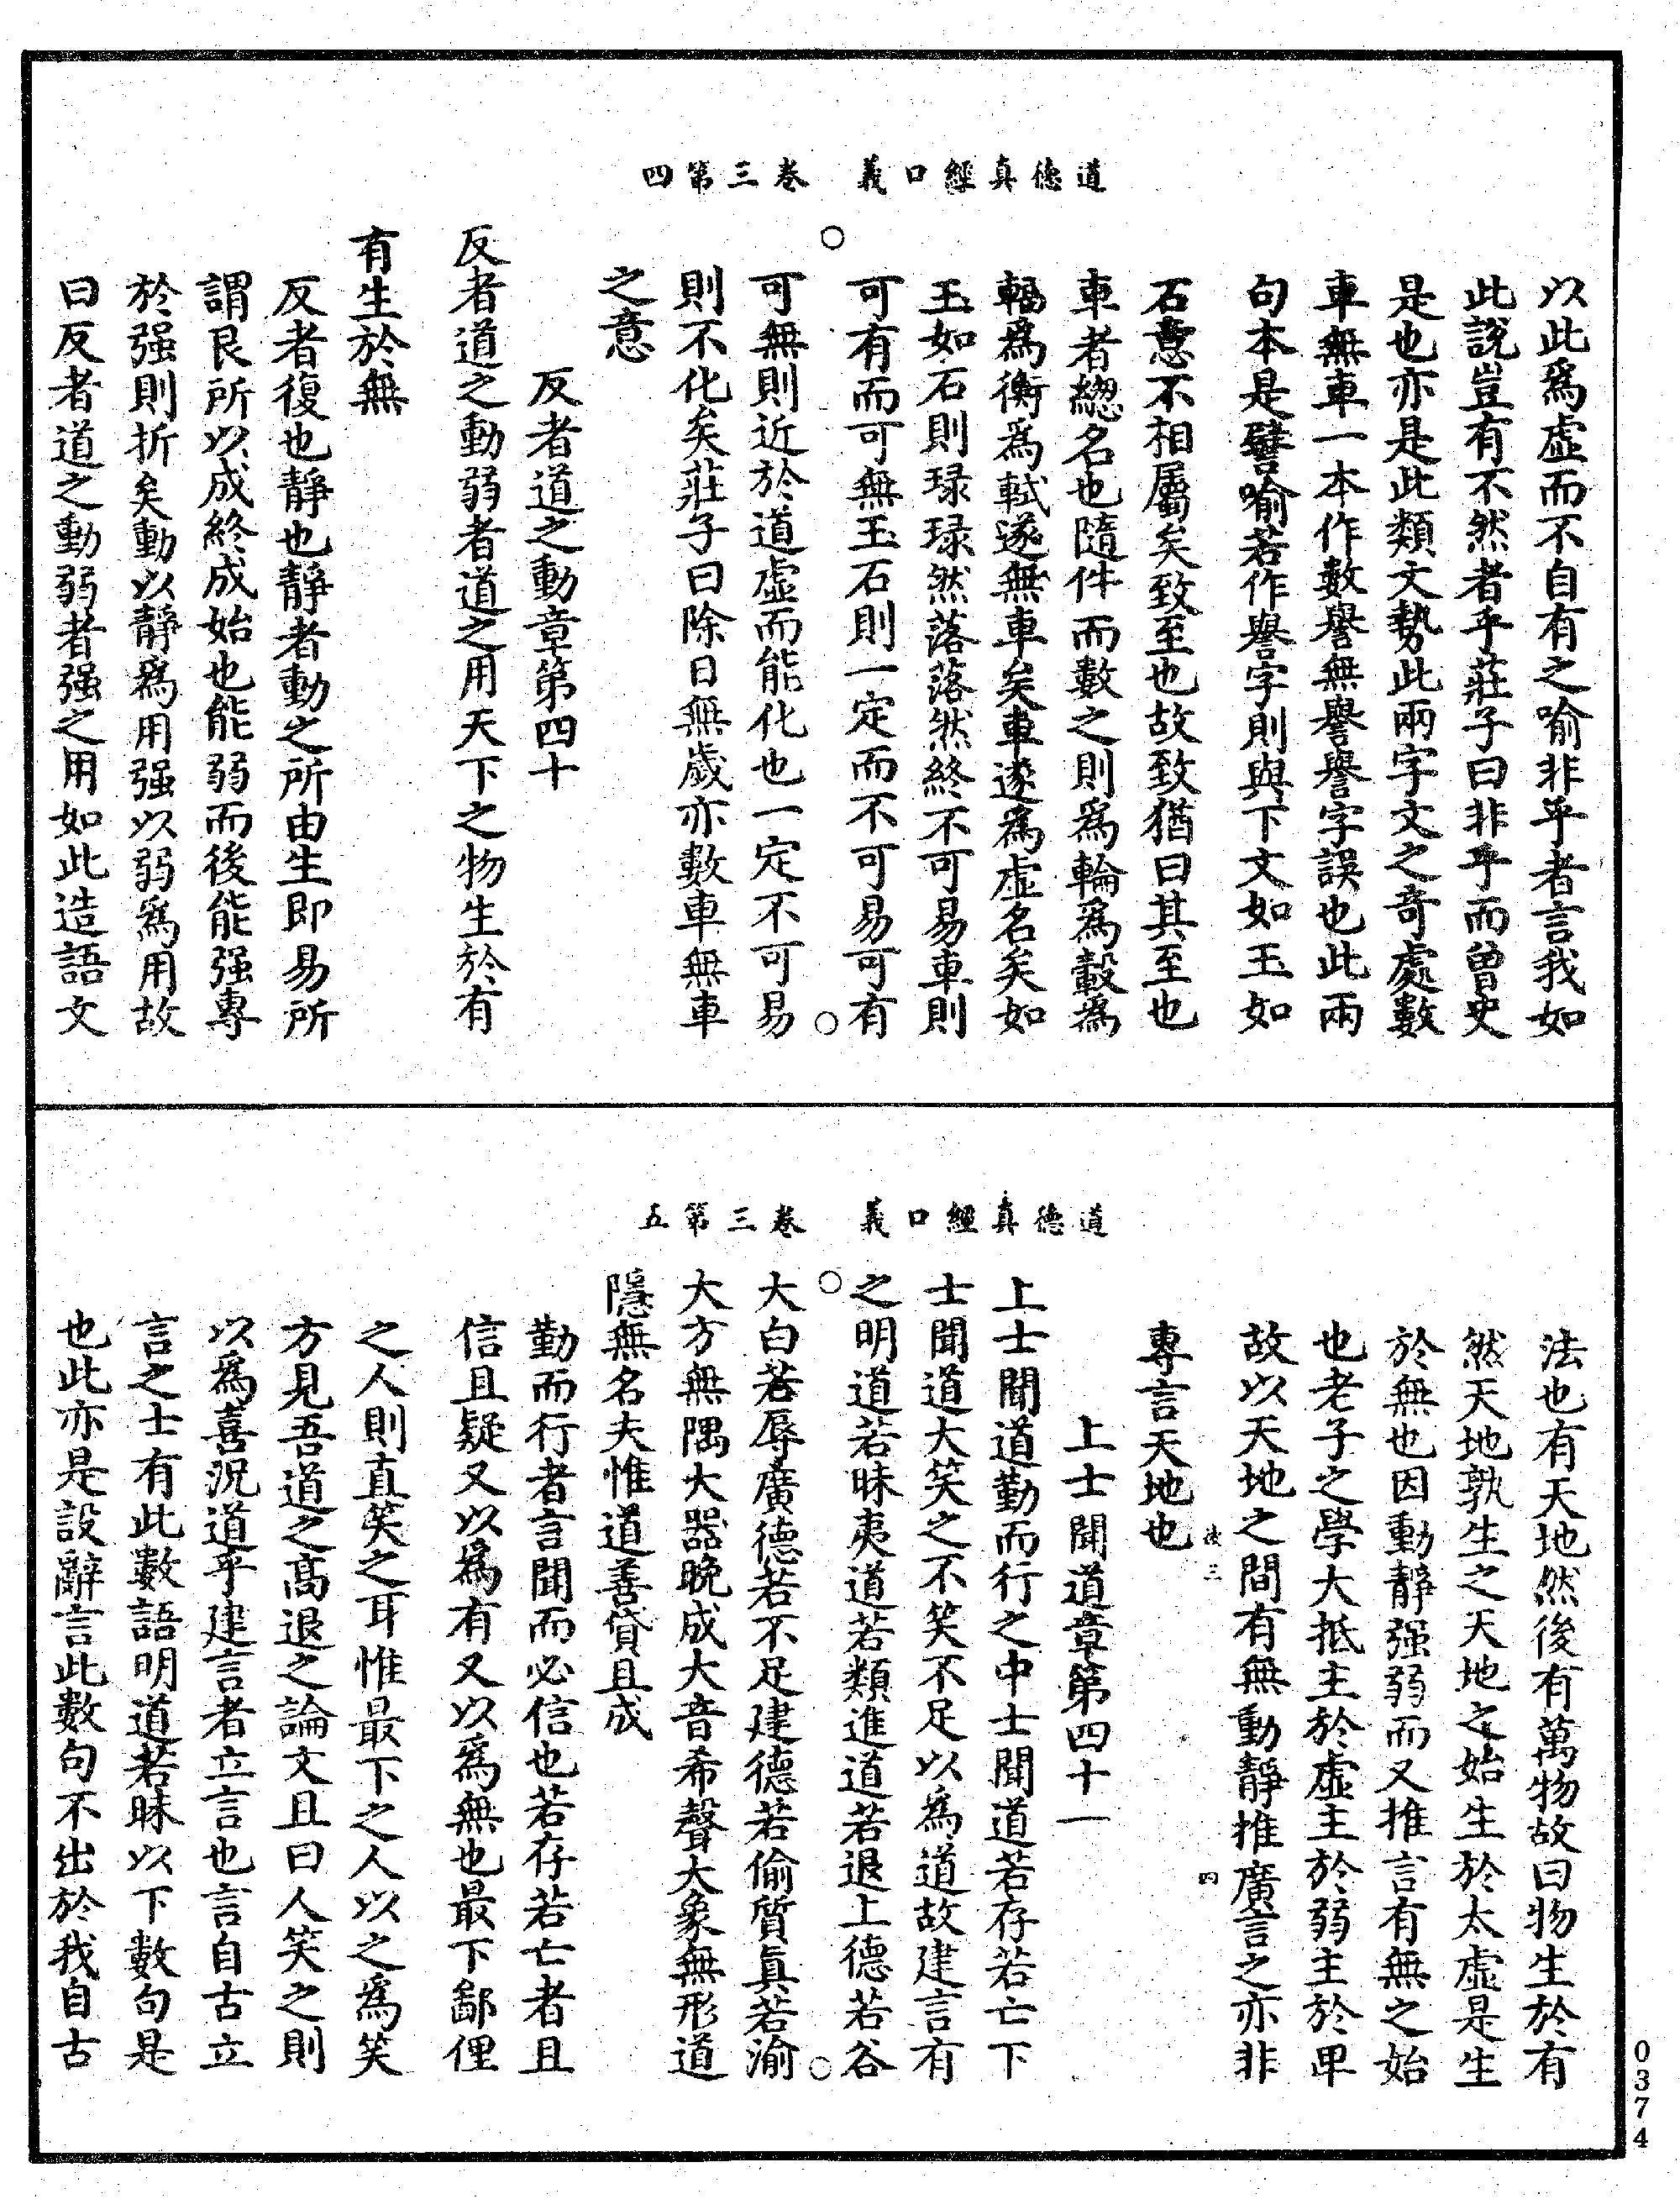 道德真經口義　卷三第四
以此爲虛而不自有之喻非乎者言我如
此說豈有不然者乎莊子曰非乎而曾史
是也亦是此類文勢此兩字文之奇處數
車無車一本作數譽無譽譽字誤也此兩
句本是譬喻若作譽字則與下文如玉如
石意不相屬矣致至也故致猶曰其至也
車者總名也隨件而數之則爲輪爲轂爲
輻爲衡爲軾遂無車矣車遂爲虛名矣如
玉如石則琭琭然落落然終不可易車則
可有而可無玉石則一定而不可易可有
可無則近於道虛而能化也一定不可易
則不化矣莊子曰除日無歲亦數車無車
之意
反者道之動章第四十
反者道之動弱者道之用天下之物生於有
有生於無
反者復也靜也靜者動之所由生即易所
謂艮所以成終成始也能弱而後能强專
於强則折矣動以靜爲用强以弱爲用故
曰反者道之動弱者强之用如此造語文
道德真經口義　卷三第五
法也有天地然後有萬物故曰物生於有
然天地孰生之天地之始生於太虛是生
於無也因動靜强弱而又推言有無之始
也老子之學大抵主於虛主於弱主於卑
故以天地之間有無動靜推廣言之亦非
三　四
專言天地也
上士聞道章第四十一
上士聞道勤而行之中士聞道若存若亡下
士聞道大笑之不笑不足以爲道故建言有
之明道若昧夷道若類進道若退上德若谷
大白若辱廣德若不足建德若偷質真若渝
大方無隅大器晚成大音希聲大象無形道
隱無名夫惟道善貸且成
勤而行者言聞而必信也若存若亡者且
信且疑又以爲有又以爲無也最下鄙俚
之人則直笑之耳惟最下之人以之爲笑
方見吾道之高退之論文且曰人笑之則
以爲喜況道乎建言者立言也言自古立
言之士有此數語明道若昧以下數句是
也此亦是設辭言此數句不出於我自古
0374